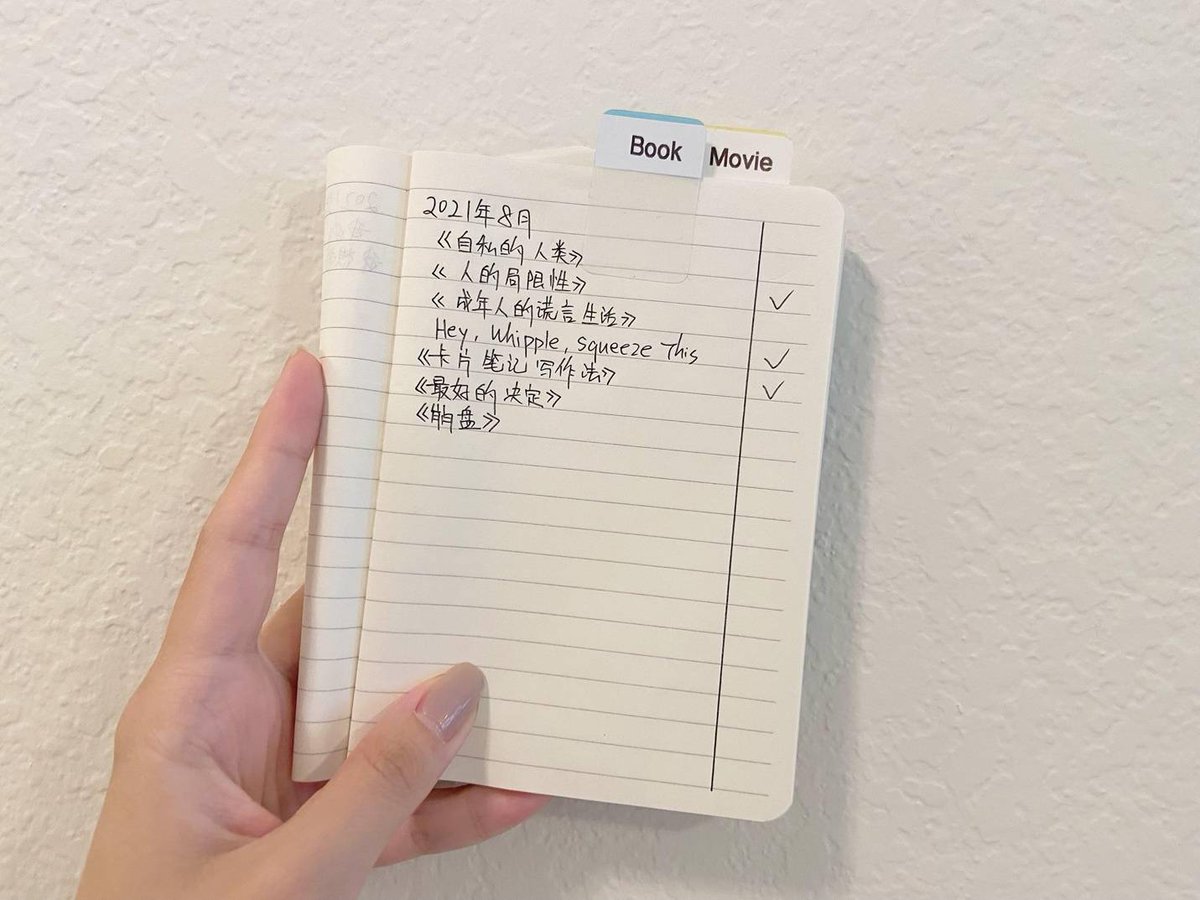 Book
Movie
2021年8月
《自私的人类》
《人的局限性》
《成年人的谎言生活》
Hey, Whipple, squeeze This
《卡片笔记写作法》
《最好的决定》
《崩盘》